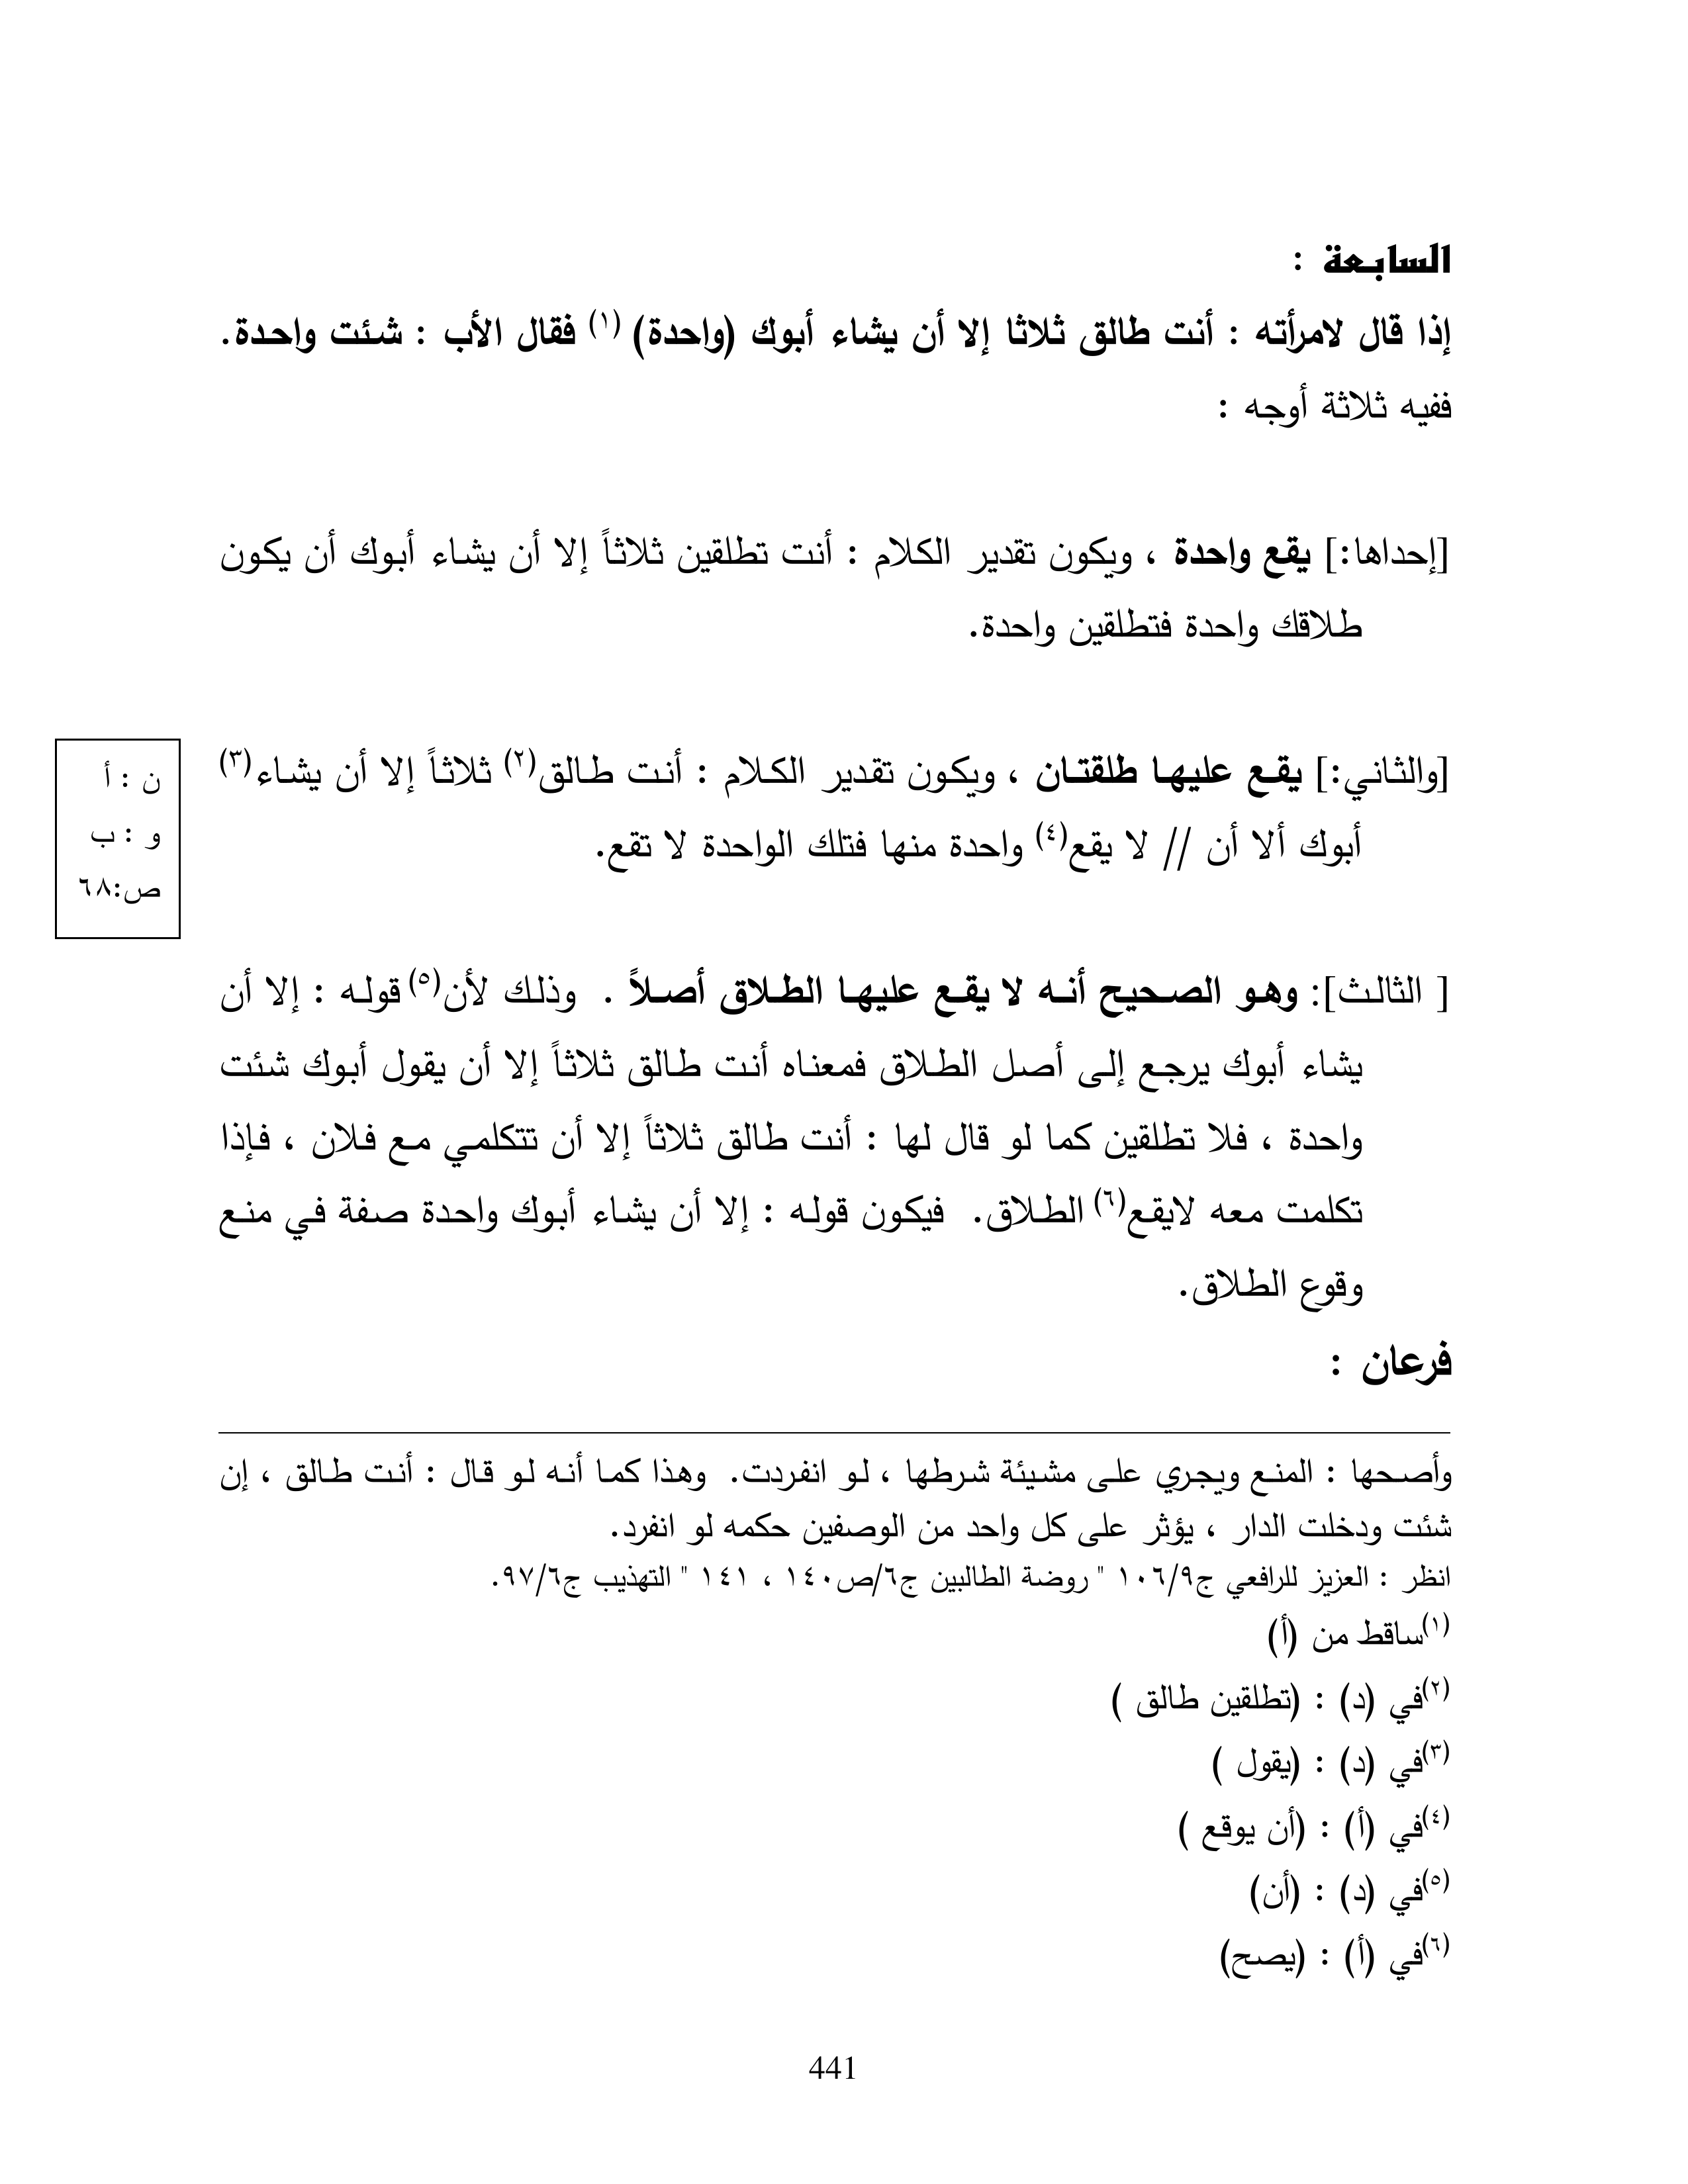 السابعة :
إذا قال لامرأته : أنت طالق ثلاثا إلا أن يشاء أبوك (واحدة) (١) فقال الأب : شئت واحدة.
ففيه ثلاثة أوجه :
[إحداها:] يقع واحدة ، ويكون تقدير الكلام : أنت تطلقين ثلاثاً إلا أن يشاء أبوك أن يكون
طلاقك واحدة فتطلقين واحدة.
[والثاني:] يقع عليها طلقتان ، ويكون تقدير الكلام : أنت طالق(٢) ثلاثاً إلا أن يشاء(٣)
أبوك ألا أن // لا يقع(٤) واحدة منها فتلك الواحدة لا تقع.
ن : أ
و : ب
ص:٦٨
[ الثالث]: وهو الصحيح أنه لا يقع عليها الطلاق أصلاً . وذلك لأن(٥) قوله : إلا أن
يشاء أبوك يرجع إلى أصل الطلاق فمعناه أنت طالق ثلاثاً إلا أن يقول أبوك شئت
واحدة ، فلا تطلقين كما لو قال لها : أنت طالق ثلاثاً إلا أن تتكلمي مع فلان ، فإذا
تكلمت معه لايقع(٦) الطلاق. فيكون قوله : إلا أن يشاء أبوك واحدة صفة في منع
وقوع الطلاق.
فرعان :
وأصحها : المنع ويجري على مشيئة شرطها ، لو انفردت. وهذا كما أنه لو قال : أنت طالق ، إن
شئت ودخلت الدار ، يؤثر على كل واحد من الوصفين حكمه لو انفرد.
انظر : العزيز للرافعي ج٩/١٠٦ " روضة الطالبين ج٦/ص١٤٠ ، ١٤١ " التهذيب ج٦/٩٧.
(١)ساقط من (أ)
(٢)في (د) : (تطلقين طالق )
(٣)في (د) : (يقول )
(٤)في (أ) : (أن يوقع )
(٥)في (د) : (أن)
(٦)في (أ) : (يصح)
441